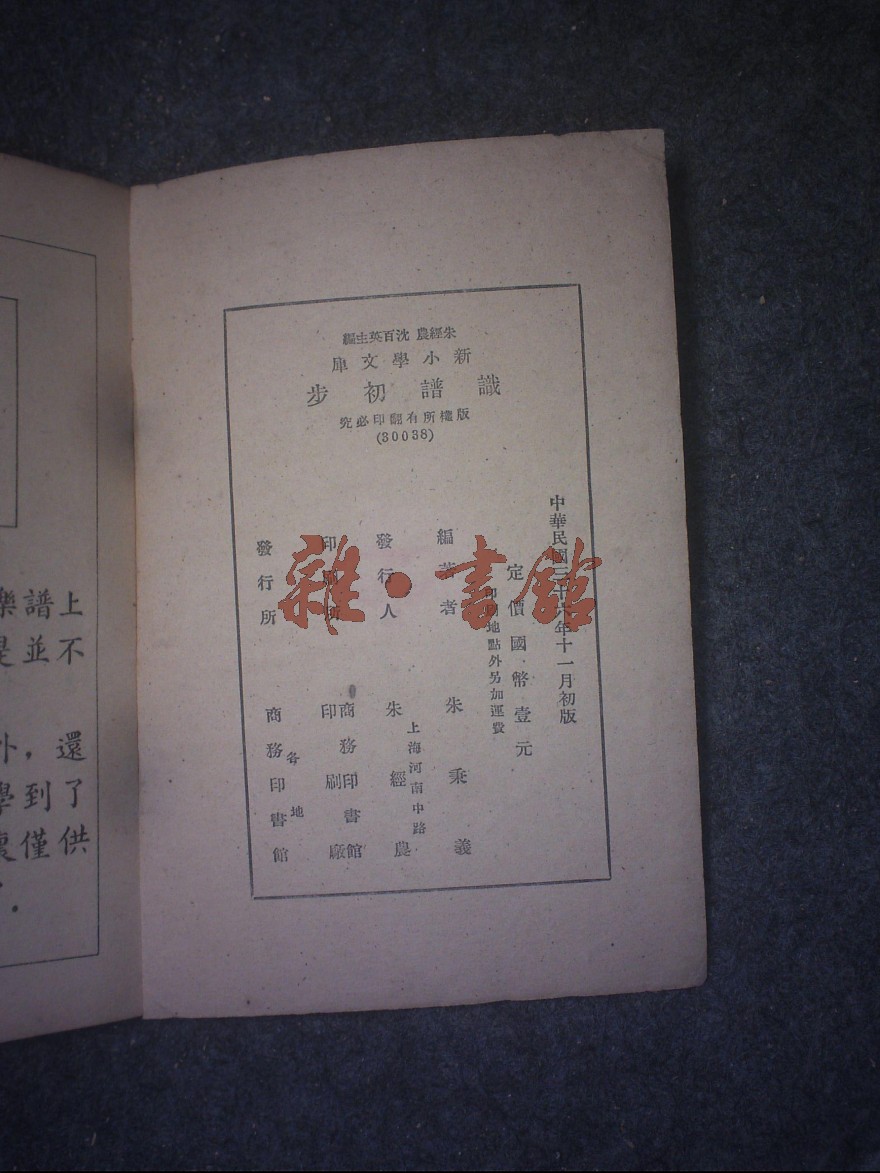 朱經農 沈百英主編
新小學文庫
識譜初步
版權所有翻印必究
(30038)
中華民國三十六年十一月初版
定價國幣壹元
印刷地點外另加運費
編著者 朱秉義
發行人 朱經農
上海河南中路
印刷所 商務印書館
印刷廠
發行所 商務印書館
各地
樂譜上
是並不
外，還
學到了
僅供
雜·書館